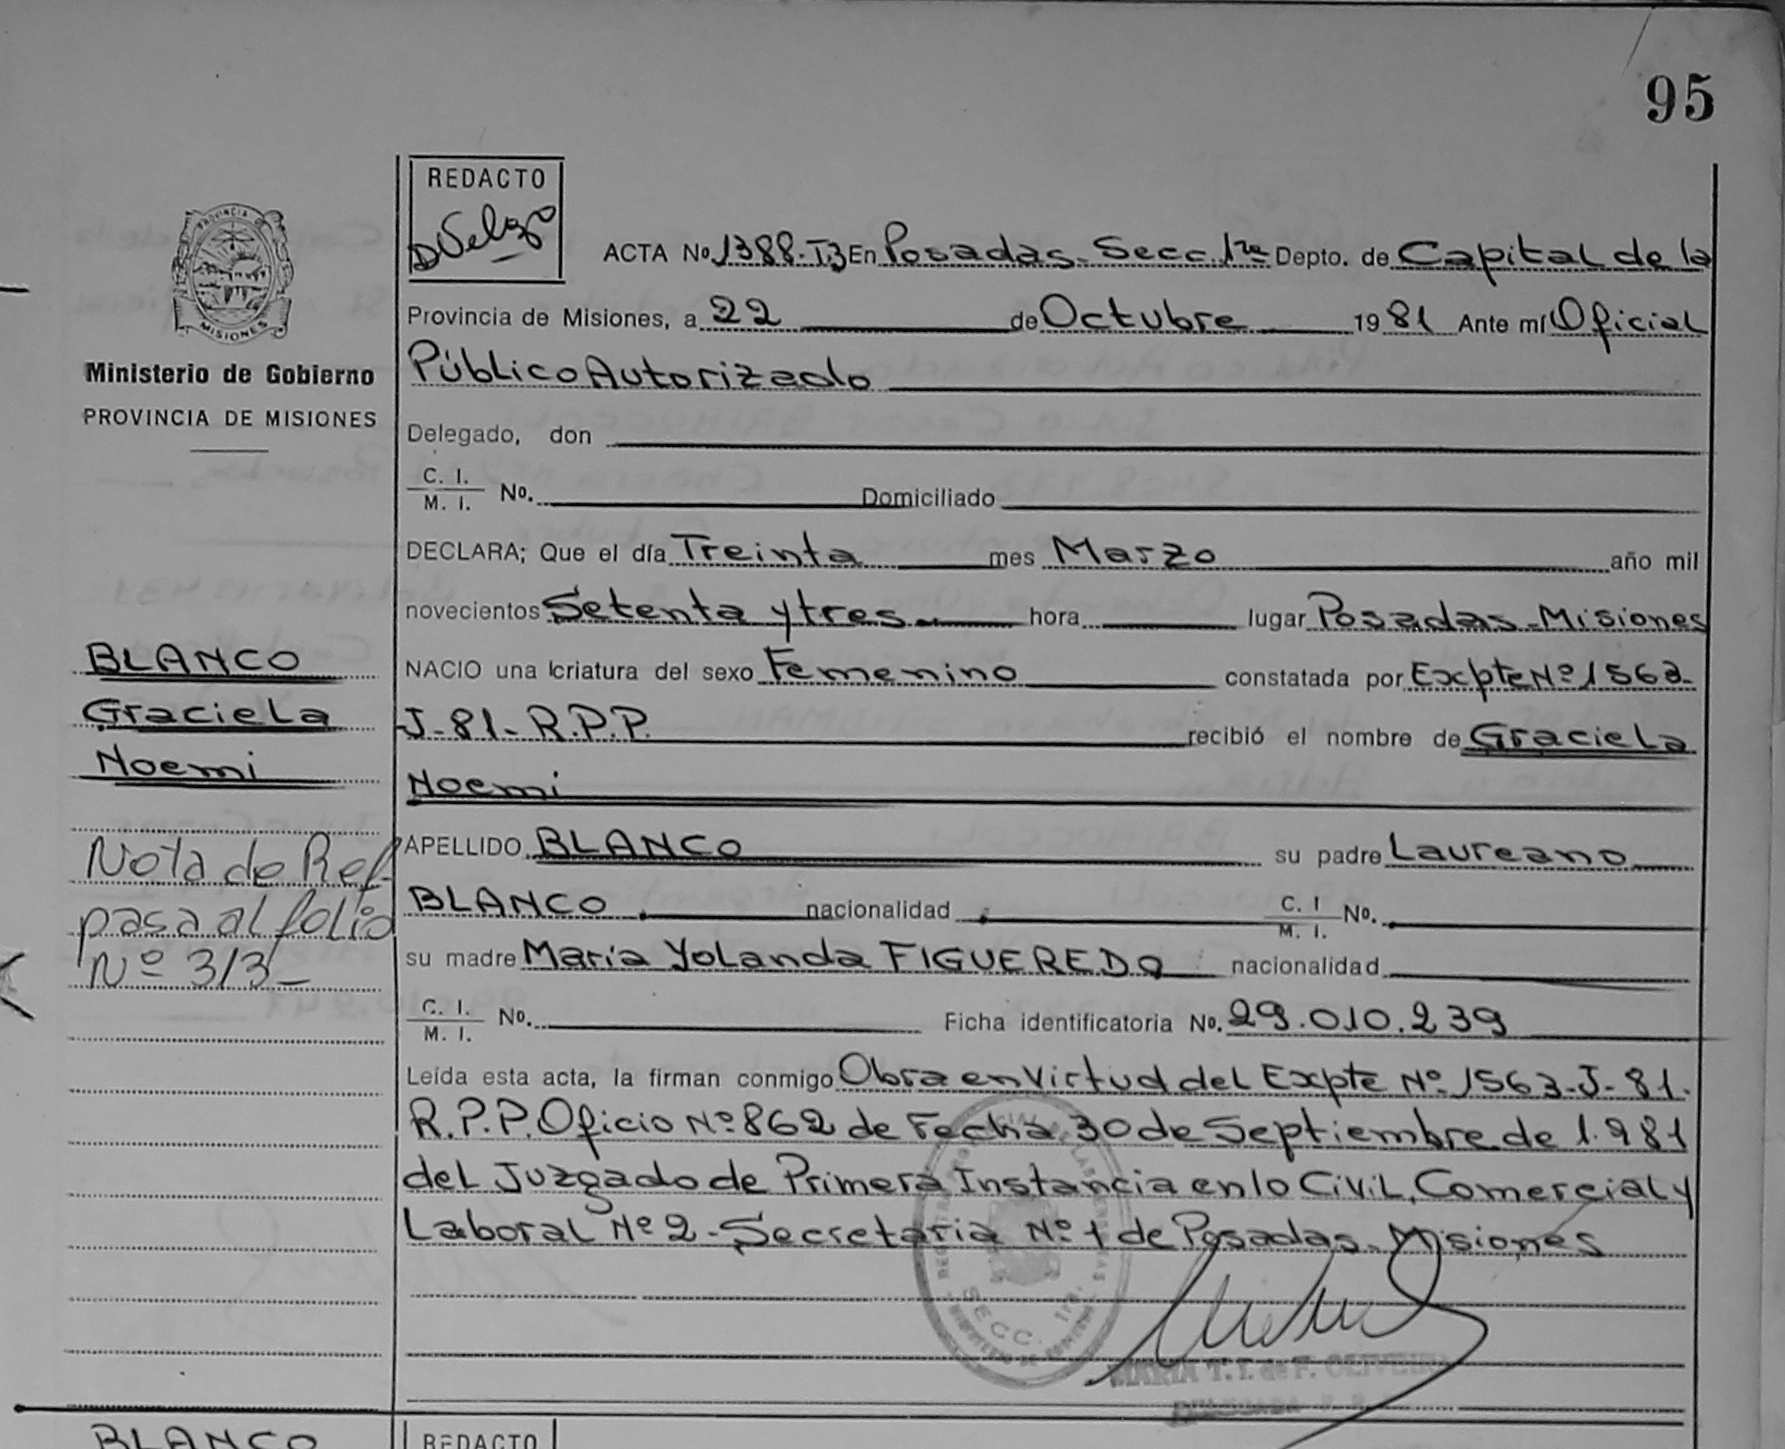 95
REDACTO
ACTA Nº 1388-T3 En Posadas - Secc. 1ra Depto. de Capital de la
Provincia de Misiones, a 22 de Octubre 1981 Ante mí Oficial
Público Autorizado
Delegado, don
C. I.
M. I. Nº. Domiciliado
DECLARA; Que el día Treinta mes Marzo año mil
novecientos Setenta y tres hora lugar Posadas - Misiones
NACIO una criatura del sexo Femenino constatada por Expte Nº 1563-
J-81-R.P.P. recibió el nombre de Graciela
Noemi
APELLIDO BLANCO su padre Laureano
BLANCO nacionalidad C. I
M. I. Nº.
su madre María Yolanda FIGUEREDO nacionalidad
C. I.
M. I. Nº. Ficha identificatoria Nº. 29.010.239
Leída esta acta, la firman conmigo Obra en Virtud del Expte Nº 1563-J-81.
R.P.P. Oficio Nº 862 de Fecha 30 de Septiembre de 1.981
del Juzgado de Primera Instancia en lo Civil, Comercial y
Laboral Nº 2 - Secretaria Nº 1 de Posadas - Misiones
SECC. 1ra.
MARIA T. T. de F. OLIVEIRA
PROVINCIA DE
MISIONES
Ministerio de Gobierno
PROVINCIA DE MISIONES
BLANCO
Graciela
Noemi
Nota de Ref.
pasa al folio
Nº 313-
BLANCO
REDACTO